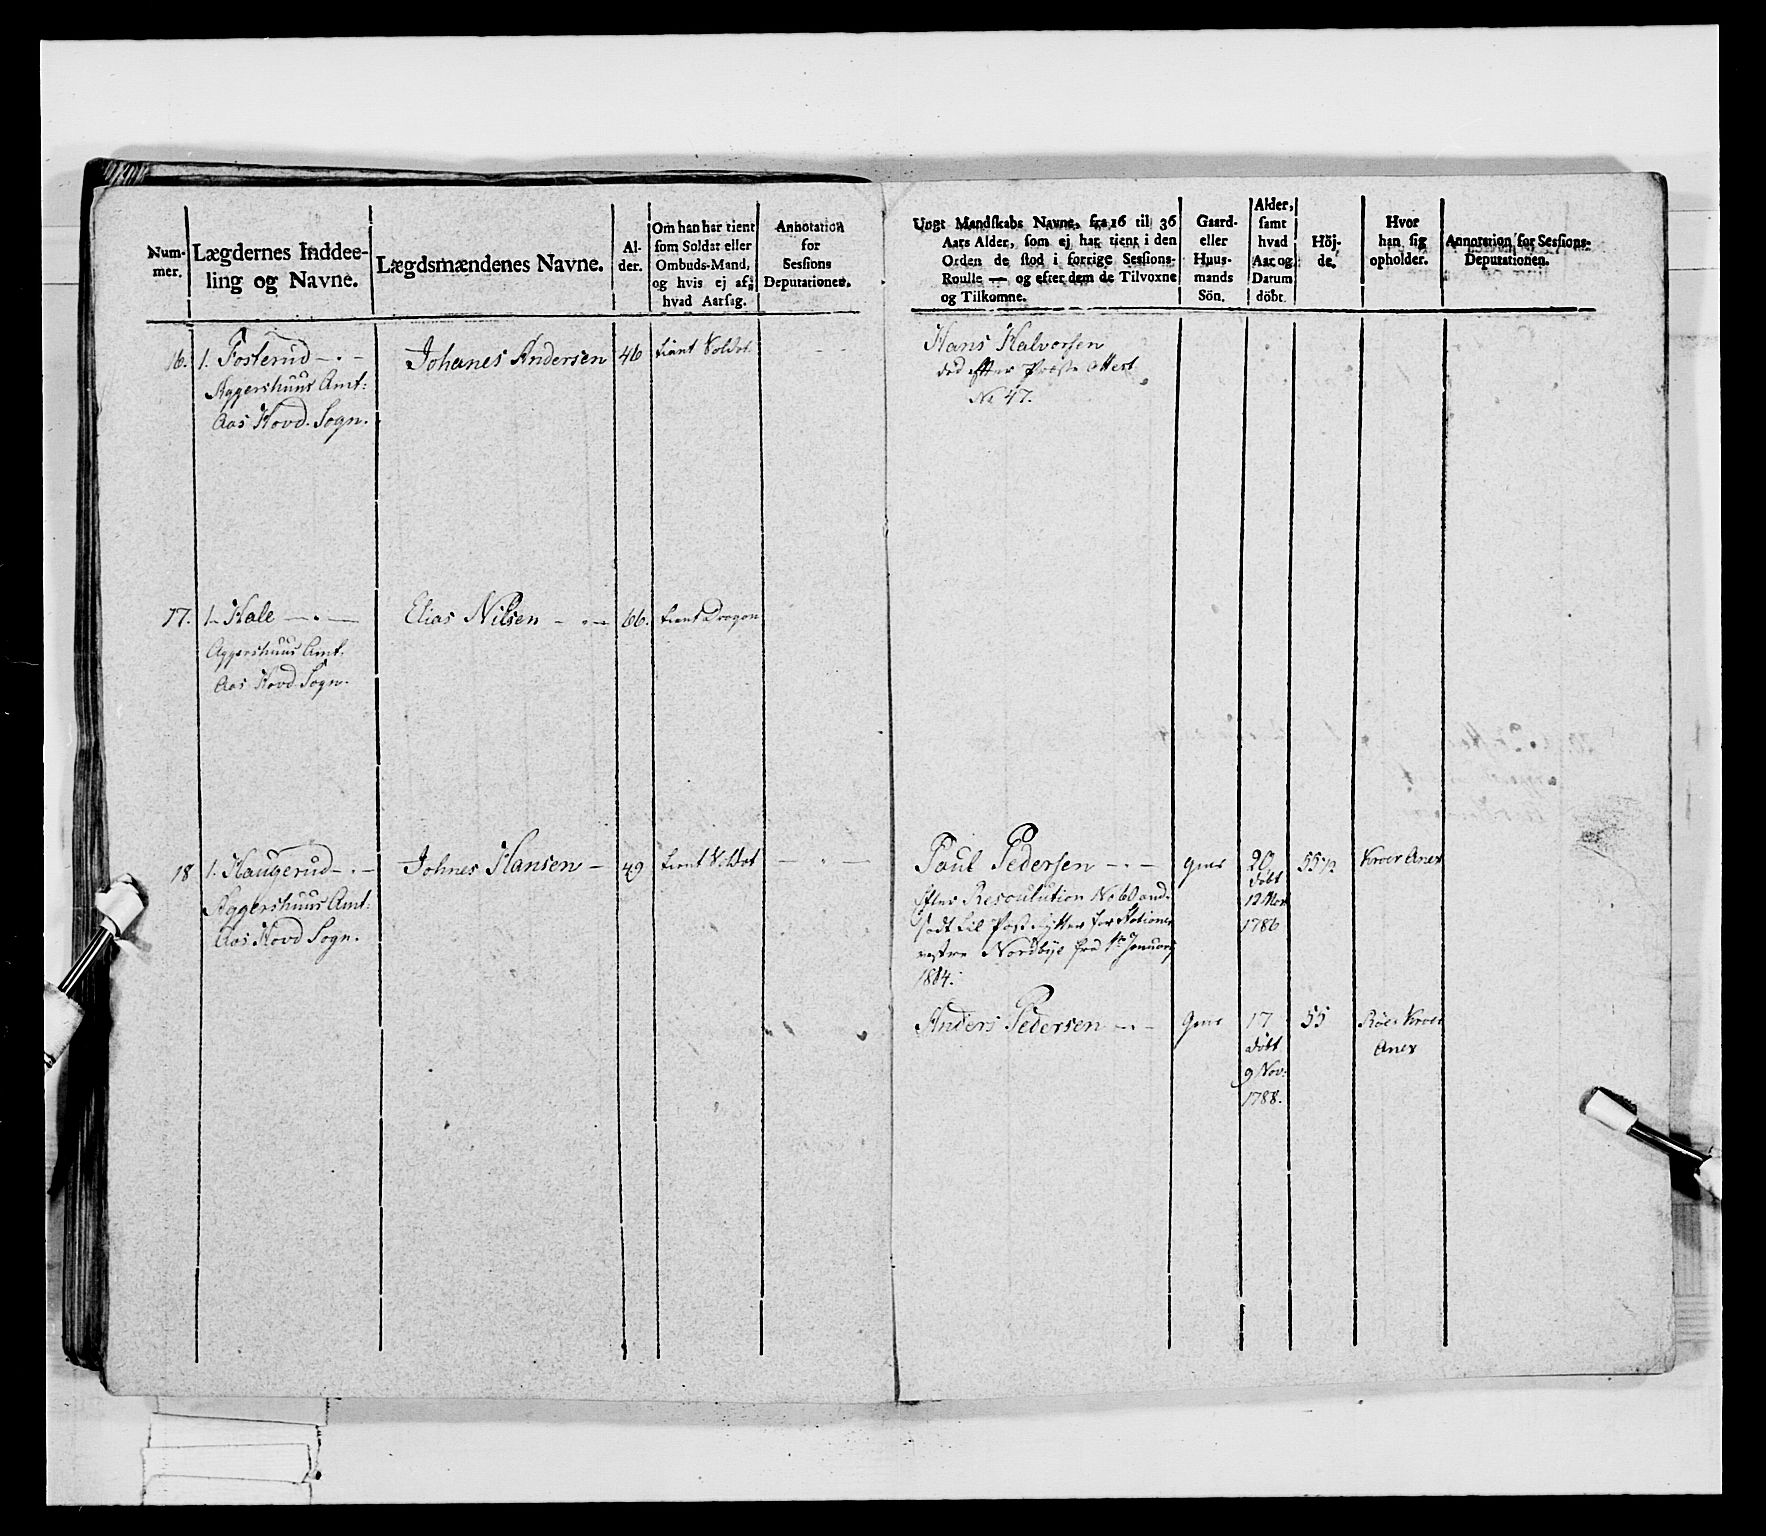 Num-
mer.
Lægdernes Inddee-
ling og Navne.
Lægdsmændenes Navne.
Al-
der.
Om han har tient
som Soldat eller
Ombuds-Mand,
og hvis ej af
hvad Aarsag.
Annotation
for
Sessions
Deputationen.
16. 1. Fosterud -.- Johanes Andersen 46 tient Soldat
Aggershuus Amt:
Aas Hovd. Sogn.
17. 1- Hale -.- Elias Nilsen -.- 66. tient Dragon
Aggershuus Amt.
Aas Hovd Sogn.
18 1. Haugerud -.- Johnes Hansen - 49 tient Soldat - . -
Aggershuus Amt:
Aas Hovd Sogn.
Ungt Mandskabs Navne, fra 16 til 36
Aars Alder, som ej har tient i den
Orden de stod i forrige Sessions-
Roulle — og efter dem de Tilvoxne
og Tilkomne.
Gaard-
eller
Huus-
mands
Sön.
Alder,
samt
hvad
Aar og
Datum
döbt.
Höj-
de.
Hvor
han sig
opholder.
Annotation for Sessions-
Deputationen.
Hans Halvorsen
död efter Præste Attest
No 47.
Paul Pedersen -.- gmS 20 55½ Kroer Anex
döbt
12 Nov
1786
Efter Resoulution No 60
til Post for Stationen
vestre Nordbye fra 1te January
1814.
Anders Pedersen -.- gmS 17 55 Röes Kroer
döbt Anex
9 Nov:
1788.